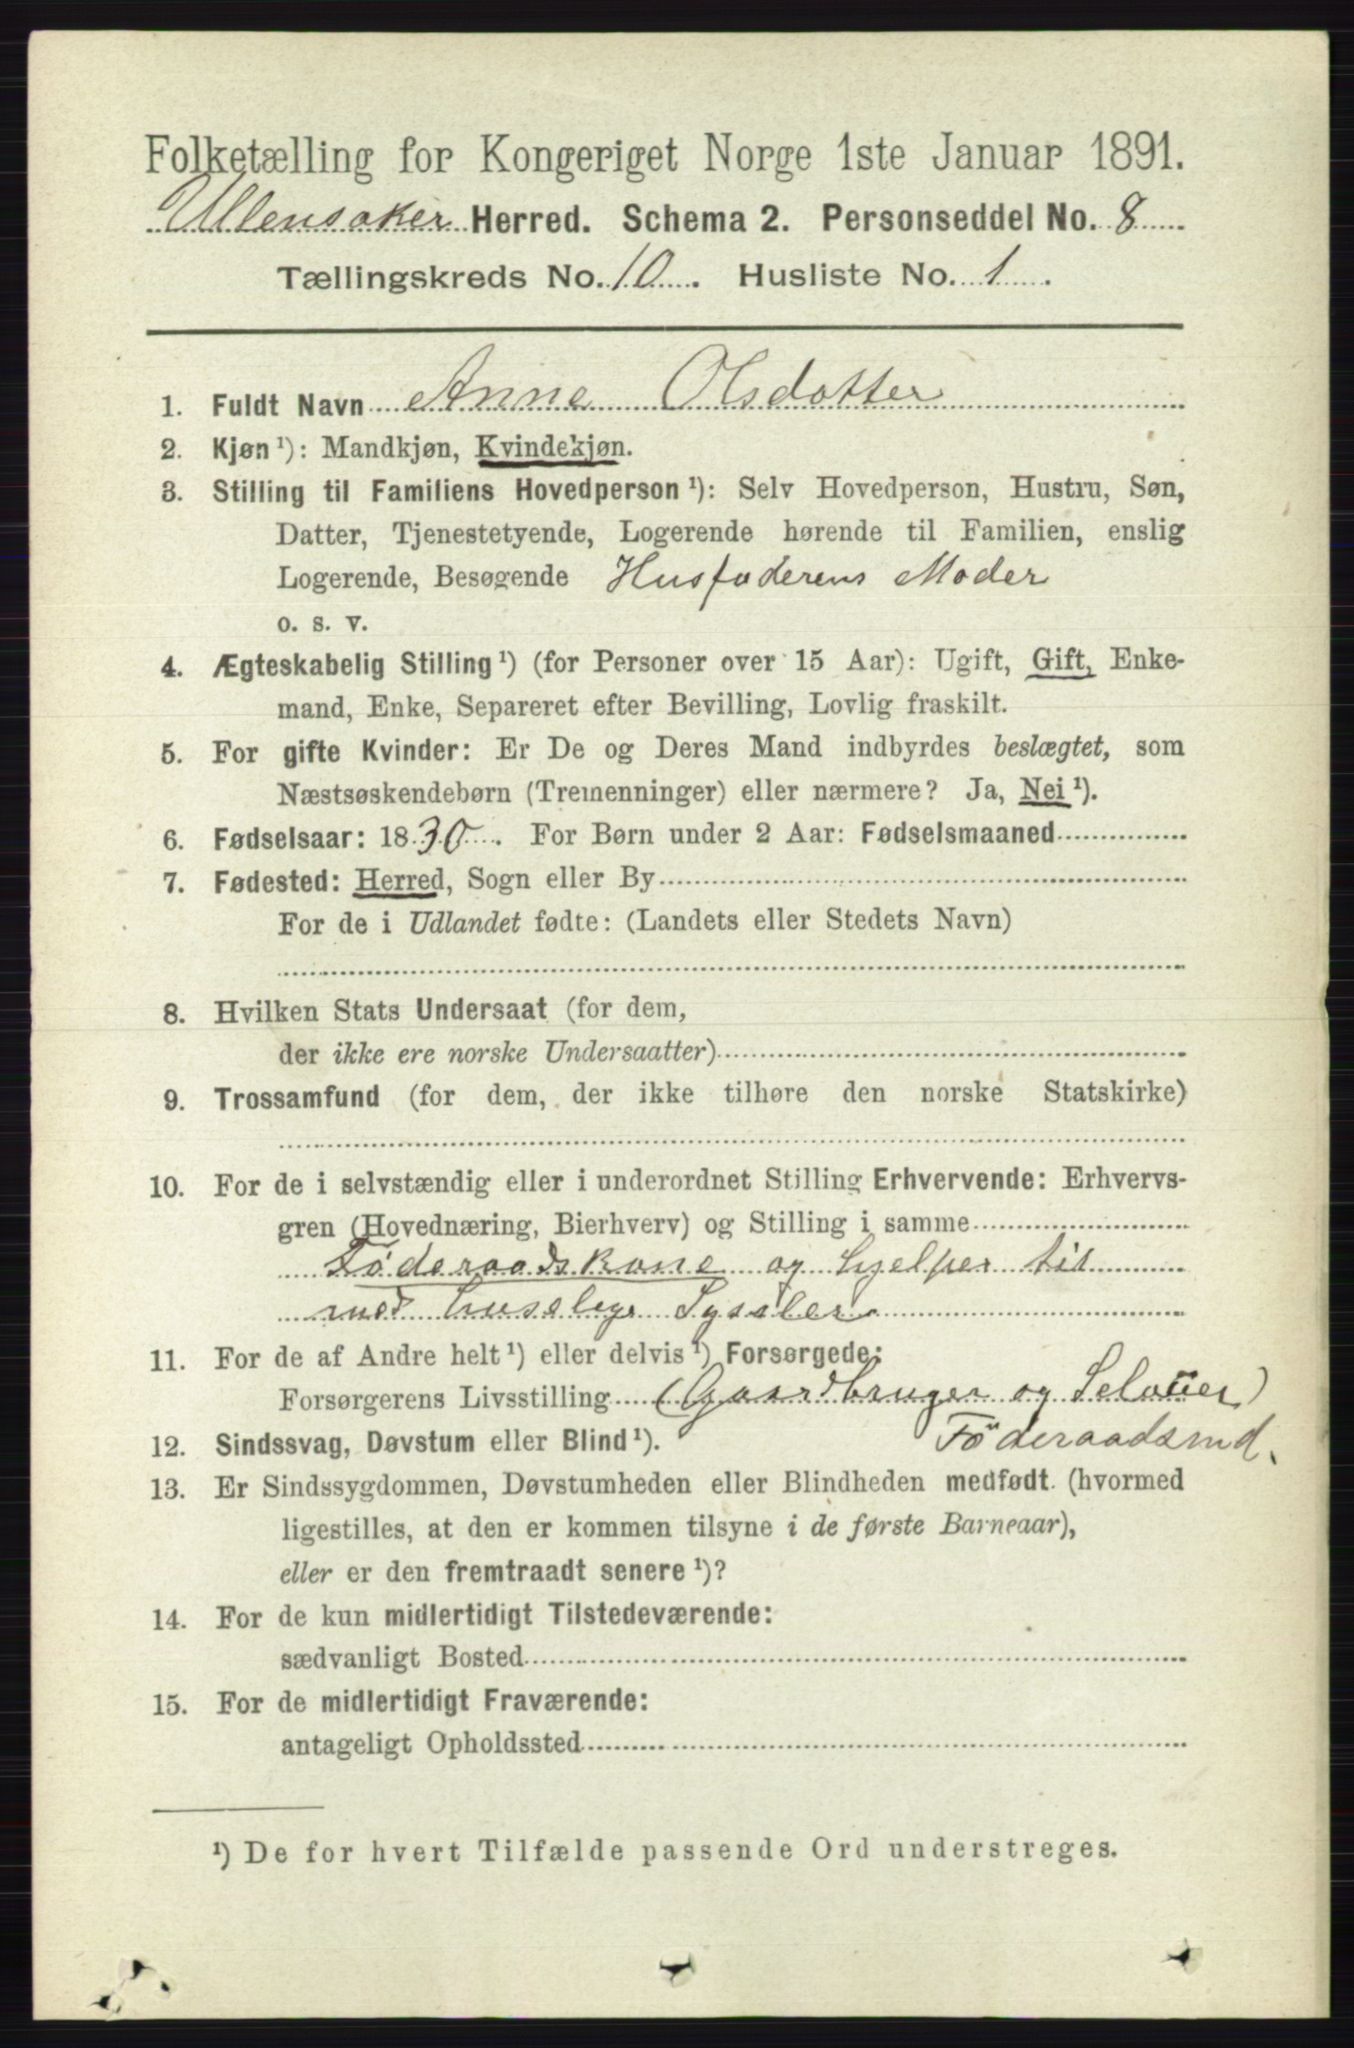 Folketælling for Kongeriget Norge 1ste Januar 1891.
Ullensaker Herred. Schema 2. Personseddel No. 8
Tællingskreds No. 10. Husliste No. 1.
1. Fuldt Navn Anne Olsdotter
2. Kjøn ¹): Mandkjøn, Kvindekjøn.
3. Stilling til Familiens Hovedperson ¹): Selv Hovedperson, Hustru, Søn,
Datter, Tjenestetyende, Logerende hørende til Familien, enslig
Logerende, Besøgende Husfaderens Moder
o. s. v.
4. Ægteskabelig Stilling ¹) (for Personer over 15 Aar): Ugift, Gift, Enke-
mand, Enke, Separeret efter Bevilling, Lovlig fraskilt.
5. For gifte Kvinder: Er De og Deres Mand indbyrdes beslægtet, som
Næstsøskendebørn (Tremenninger) eller nærmere? Ja, Nei ¹).
6. Fødselsaar: 1830. For Børn under 2 Aar: Fødselsmaaned
7. Fødested: Herred, Sogn eller By
For de i Udlandet fødte: (Landets eller Stedets Navn)
8. Hvilken Stats Undersaat (for dem,
der ikke ere norske Undersaatter)
9. Trossamfund (for dem, der ikke tilhøre den norske Statskirke)
10. For de i selvstændig eller i underordnet Stilling Erhvervende: Erhvervs-
gren (Hovednæring, Bierhverv) og Stilling i samme
Føderaadskone og hjelper til
med huslige Sysler
11. For de af Andre helt ¹) eller delvis ¹) Forsørgede:
Forsørgerens Livsstilling (Gaardbruger og Seloiier)
Föderaadsmd.
12. Sindssvag, Døvstum eller Blind ¹).
13. Er Sindssygdommen, Døvstumheden eller Blindheden medfødt (hvormed
ligestilles, at den er kommen tilsyne i de første Barneaar),
eller er den fremtraadt senere ¹)?
14. For de kun midlertidigt Tilstedeværende:
sædvanligt Bosted
15. For de midlertidigt Fraværende:
antageligt Opholdssted
¹) De for hvert Tilfælde passende Ord understreges.